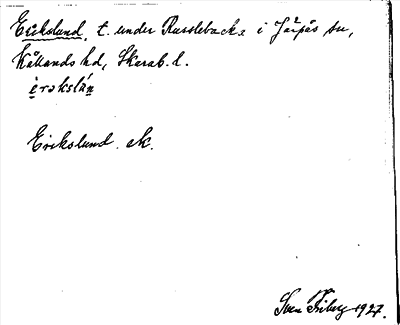 Erikslund, t. under Russlebacka i Järpås sn,
Kållands hd, Skarab. l.
èrəkslún
Erikslund. ek.
Sven Friberg 1927.